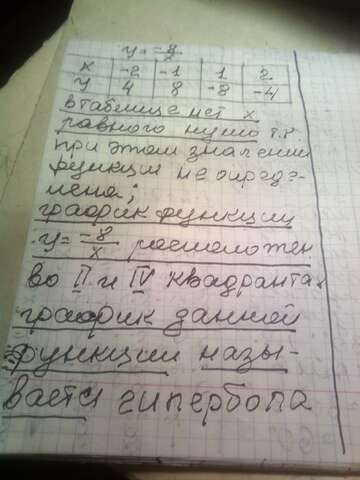 y = -8/x
x | -2 | -1 | 1 | 2
y | 4 | 8 | -8 | -4
в таблице нет x
равного нулю т.к
при этом значении
функции не опреде-
лена;
график функции
y = -8/x расположен
во II и IV квадрантах
график данной
функции назы-
вается гипербола